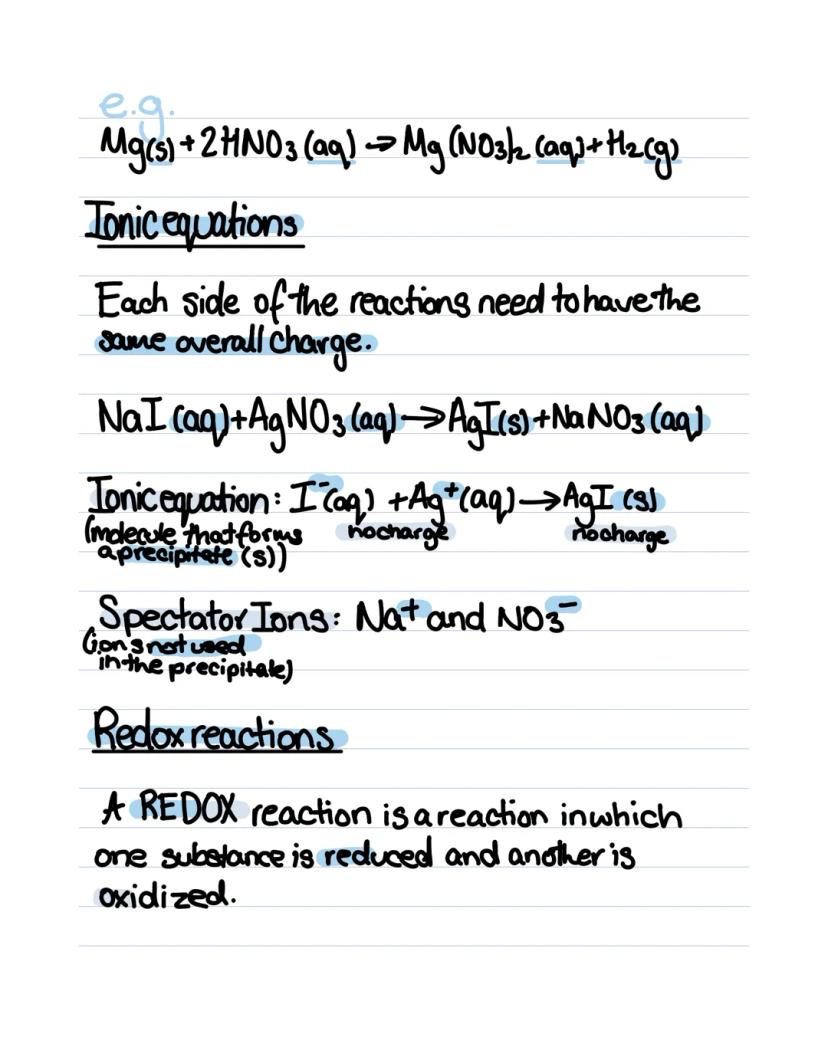 e.g.
Mg(s) + 2HNO₃ (aq) → Mg(NO₃)₂ (aq) + H₂(g)
Ionic equations
Each side of the reactions need to have the
same overall charge.
NaI (aq) + AgNO₃ (aq) → AgI(s) + NaNO₃ (aq)
Ionic equation: I⁻(aq) + Ag⁺(aq) → AgI (s)
(molecule that forms no charge no charge
a precipitate (s))
Spectator Ions: Na⁺ and NO₃⁻
(ions not used
in the precipitate)
Redox reactions
A REDOX reaction is a reaction in which
one substance is reduced and another is
oxidized.